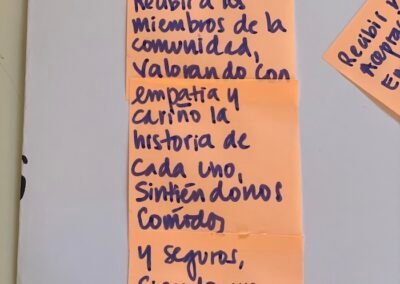 Recibir a los
miembros de la
comunidad,
Valorando con
empatía y
cariño la
historia de
cada uno,
Sintiéndonos
Comódos
y seguros,
Recibir